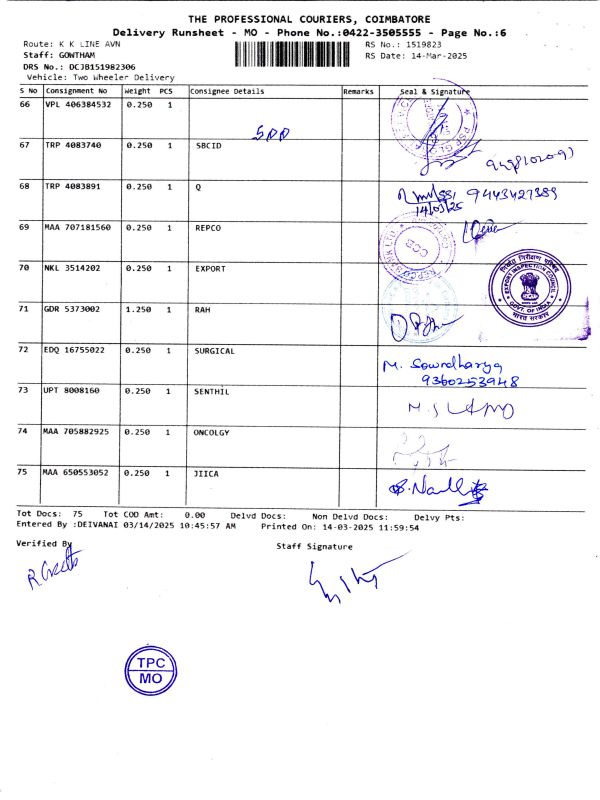 THE PROFESSIONAL COURIERS, COIMBATORE
Delivery Runsheet - MO - Phone No.:0422-3505555 - Page No.:6
Route: K K LINE AVN RS No.: 1519823
Staff: GOWTHAM RS Date: 14-Mar-2025
DRS No.: DCJB151982306
Vehicle: Two Wheeler Delivery
S No Consignment No Weight PCS Consignee Details Remarks Seal & Signature
66 VPL 406384532 0.250 1
67 TRP 4083740 0.250 1 SBCID
68 TRP 4083891 0.250 1 Q 9443427389
14/03/25
69 MAA 707181560 0.250 1 REPCO
70 NKL 3514202 0.250 1 EXPORT
निर्यात निरीक्षण परिषद
EXPORT INSPECTION COUNCIL
GOVT. OF INDIA
भारत सरकार
71 GDR 5373002 1.250 1 RAH
72 EDQ 16755022 0.250 1 SURGICAL M. Sowndharya
9360253948
73 UPT 8008160 0.250 1 SENTHIL
74 MAA 705882925 0.250 1 ONCOLGY
75 MAA 650553052 0.250 1 JIICA
Tot Docs: 75 Tot COD Amt: 0.00 Delvd Docs: Non Delvd Docs: Delvy Pts:
Entered By :DEIVANAI 03/14/2025 10:45:57 AM Printed On: 14-03-2025 11:59:54
Verified By Staff Signature
TPC
MO